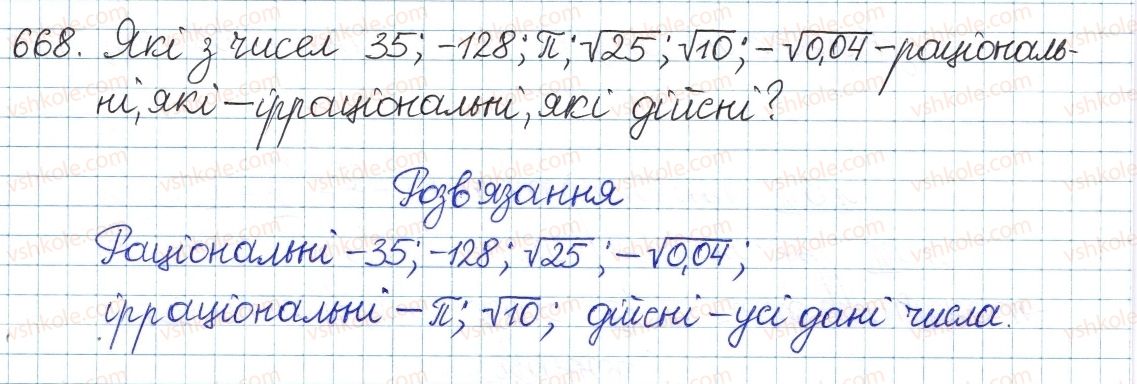 668. Які з чисел 35; -128; π; √25; √10; -√0,04 - раціональ-
ні, які - ірраціональні, які дійсні?
Розв'язання
Раціональні - 35; -128; √25; -√0,04;
ірраціональні - π; √10; дійсні - усі дані числа.